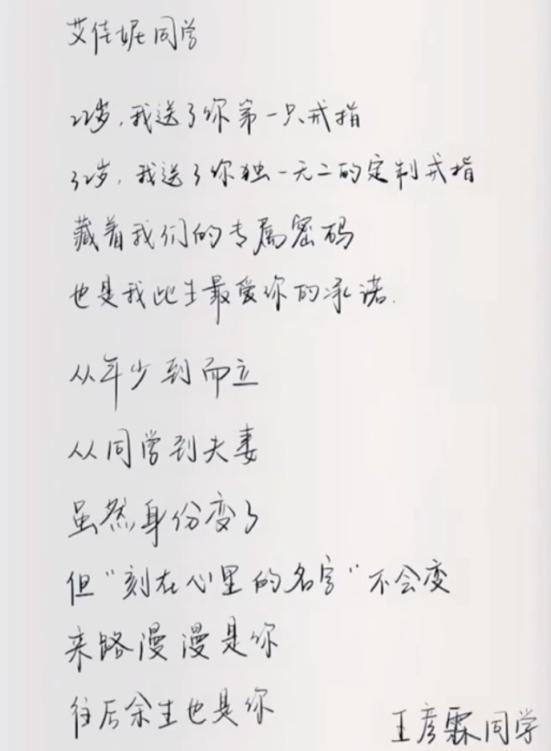 艾佳妮同学
22岁，我送了你第一只戒指
32岁，我送了你独一无二的定制戒指
藏着我们的专属密码
也是我此生最爱你的承诺.
从年少到而立
从同学到夫妻
虽然身份变了
但“刻在心里的名字”不会变
来路漫漫是你
往后余生也是你
王彦霖同学